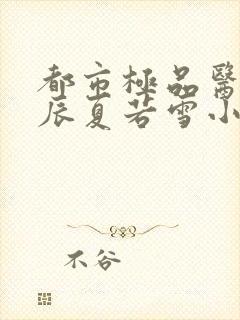 都市極品醫
辰夏若雪小
不谷